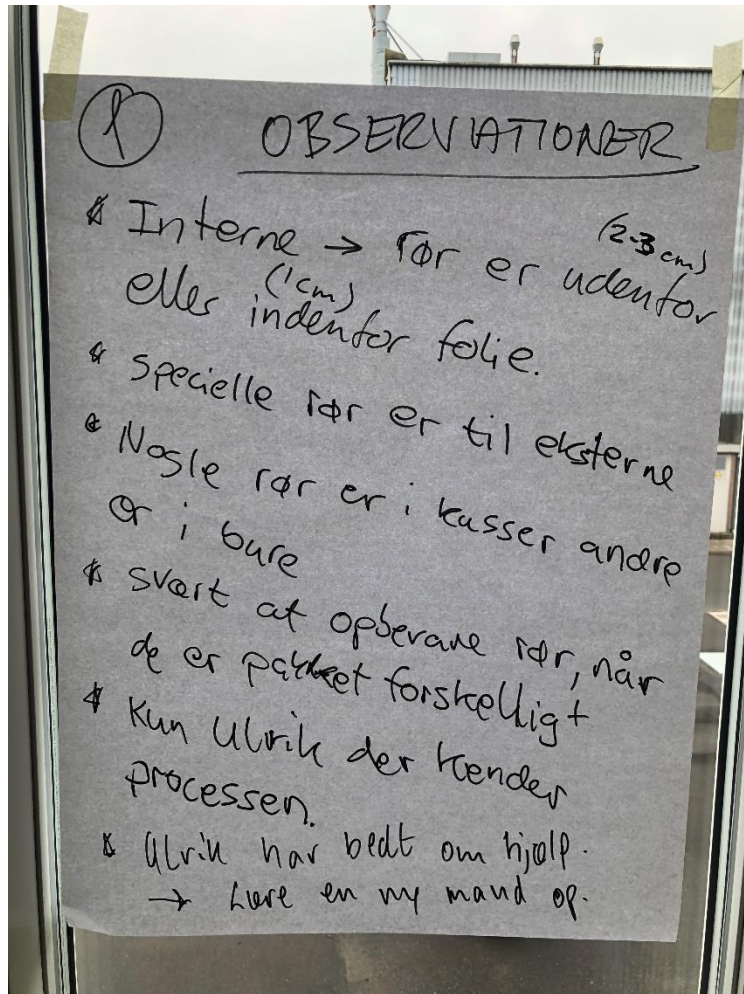 1 OBSERVATIONER
* Interne → rør er udenfor (2-3 cm)
eller indenfor (1 cm) folie.
* specielle rør er til eksterne
* Nogle rør er i kasser andre
er i bure
* svært at opbevare rør, når
de er pakket forskelligt
* Kun Ulrik der kender
processen.
* Ulrik har bedt om hjælp.
→ Lære en ny mand op.